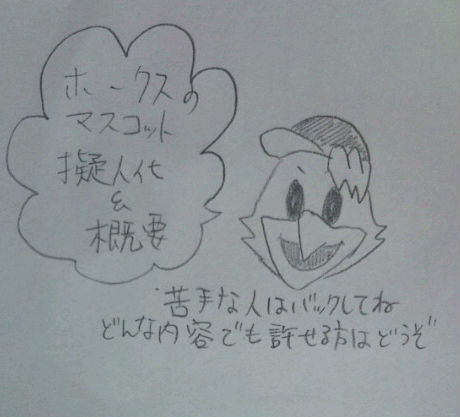 ホークスの
マスコット
擬人化
&
概要
苦手な人はバックしてね
どんな内容でも許せる方はどうぞ